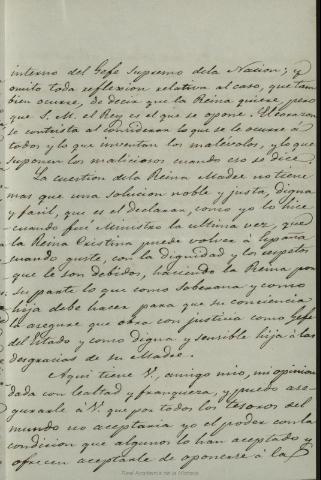 interno del Gefe Supremo dela Nacion; y
omito toda reflexion relativa al caso, que tam
bien ocurre, de decir que la Reina quiere, pero
que S. M. el Rey es el que se opone. El corazon
se contrista al considerar lo que se le ocurre á
todos y lo que inventan los malevolos, y lo que
suponen los maliciosos cuando eso se dice.
La cuestion dela Reina Madre no tiene
mas que una solucion noble y justa, digna
y facil, que es el declarar, como yo lo hice
cuando fui Ministro la ultima vez, que
la Reina Cristina puede volver á España
cuando guste, con la dignidad y los respetos
que le son debidos, haciendo la Reina por
su parte lo que como Soberana y como
hija debe hacer para que su conciencia
la asegure que obra con justicia como Gefe
del Estado y como digna y sensible hija á las
desgracias de su Madre.
Aqui tiene V., amigo mio, mi opinion
dada con lealtad y franqueza, y puedo ase-
gurarle á V. que por todos los tesoros del
mundo no aceptaria yo el poder con la
condicion que algunos lo han aceptado y
ofrecen aceptarle de oponerse á la
Real Academia de la Historia